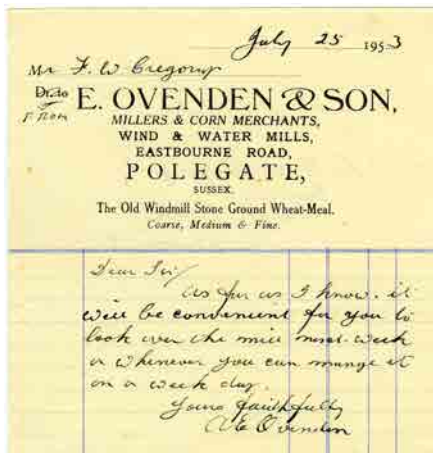 July 25 1953
Mr F. W Gregory
Dr. to
From
E. OVENDEN & SON,
MILLERS & CORN MERCHANTS,
WIND & WATER MILLS,
EASTBOURNE ROAD,
POLEGATE,
SUSSEX.
The Old Windmill Stone Ground Wheat-Meal.
Coarse, Medium & Fine.
Dear Sir/
As far as I know. it
will be convenient for you to
look over the mill next-week
or whenever you can mange it
on a week day.
Yours faithfully
A E Ovenden